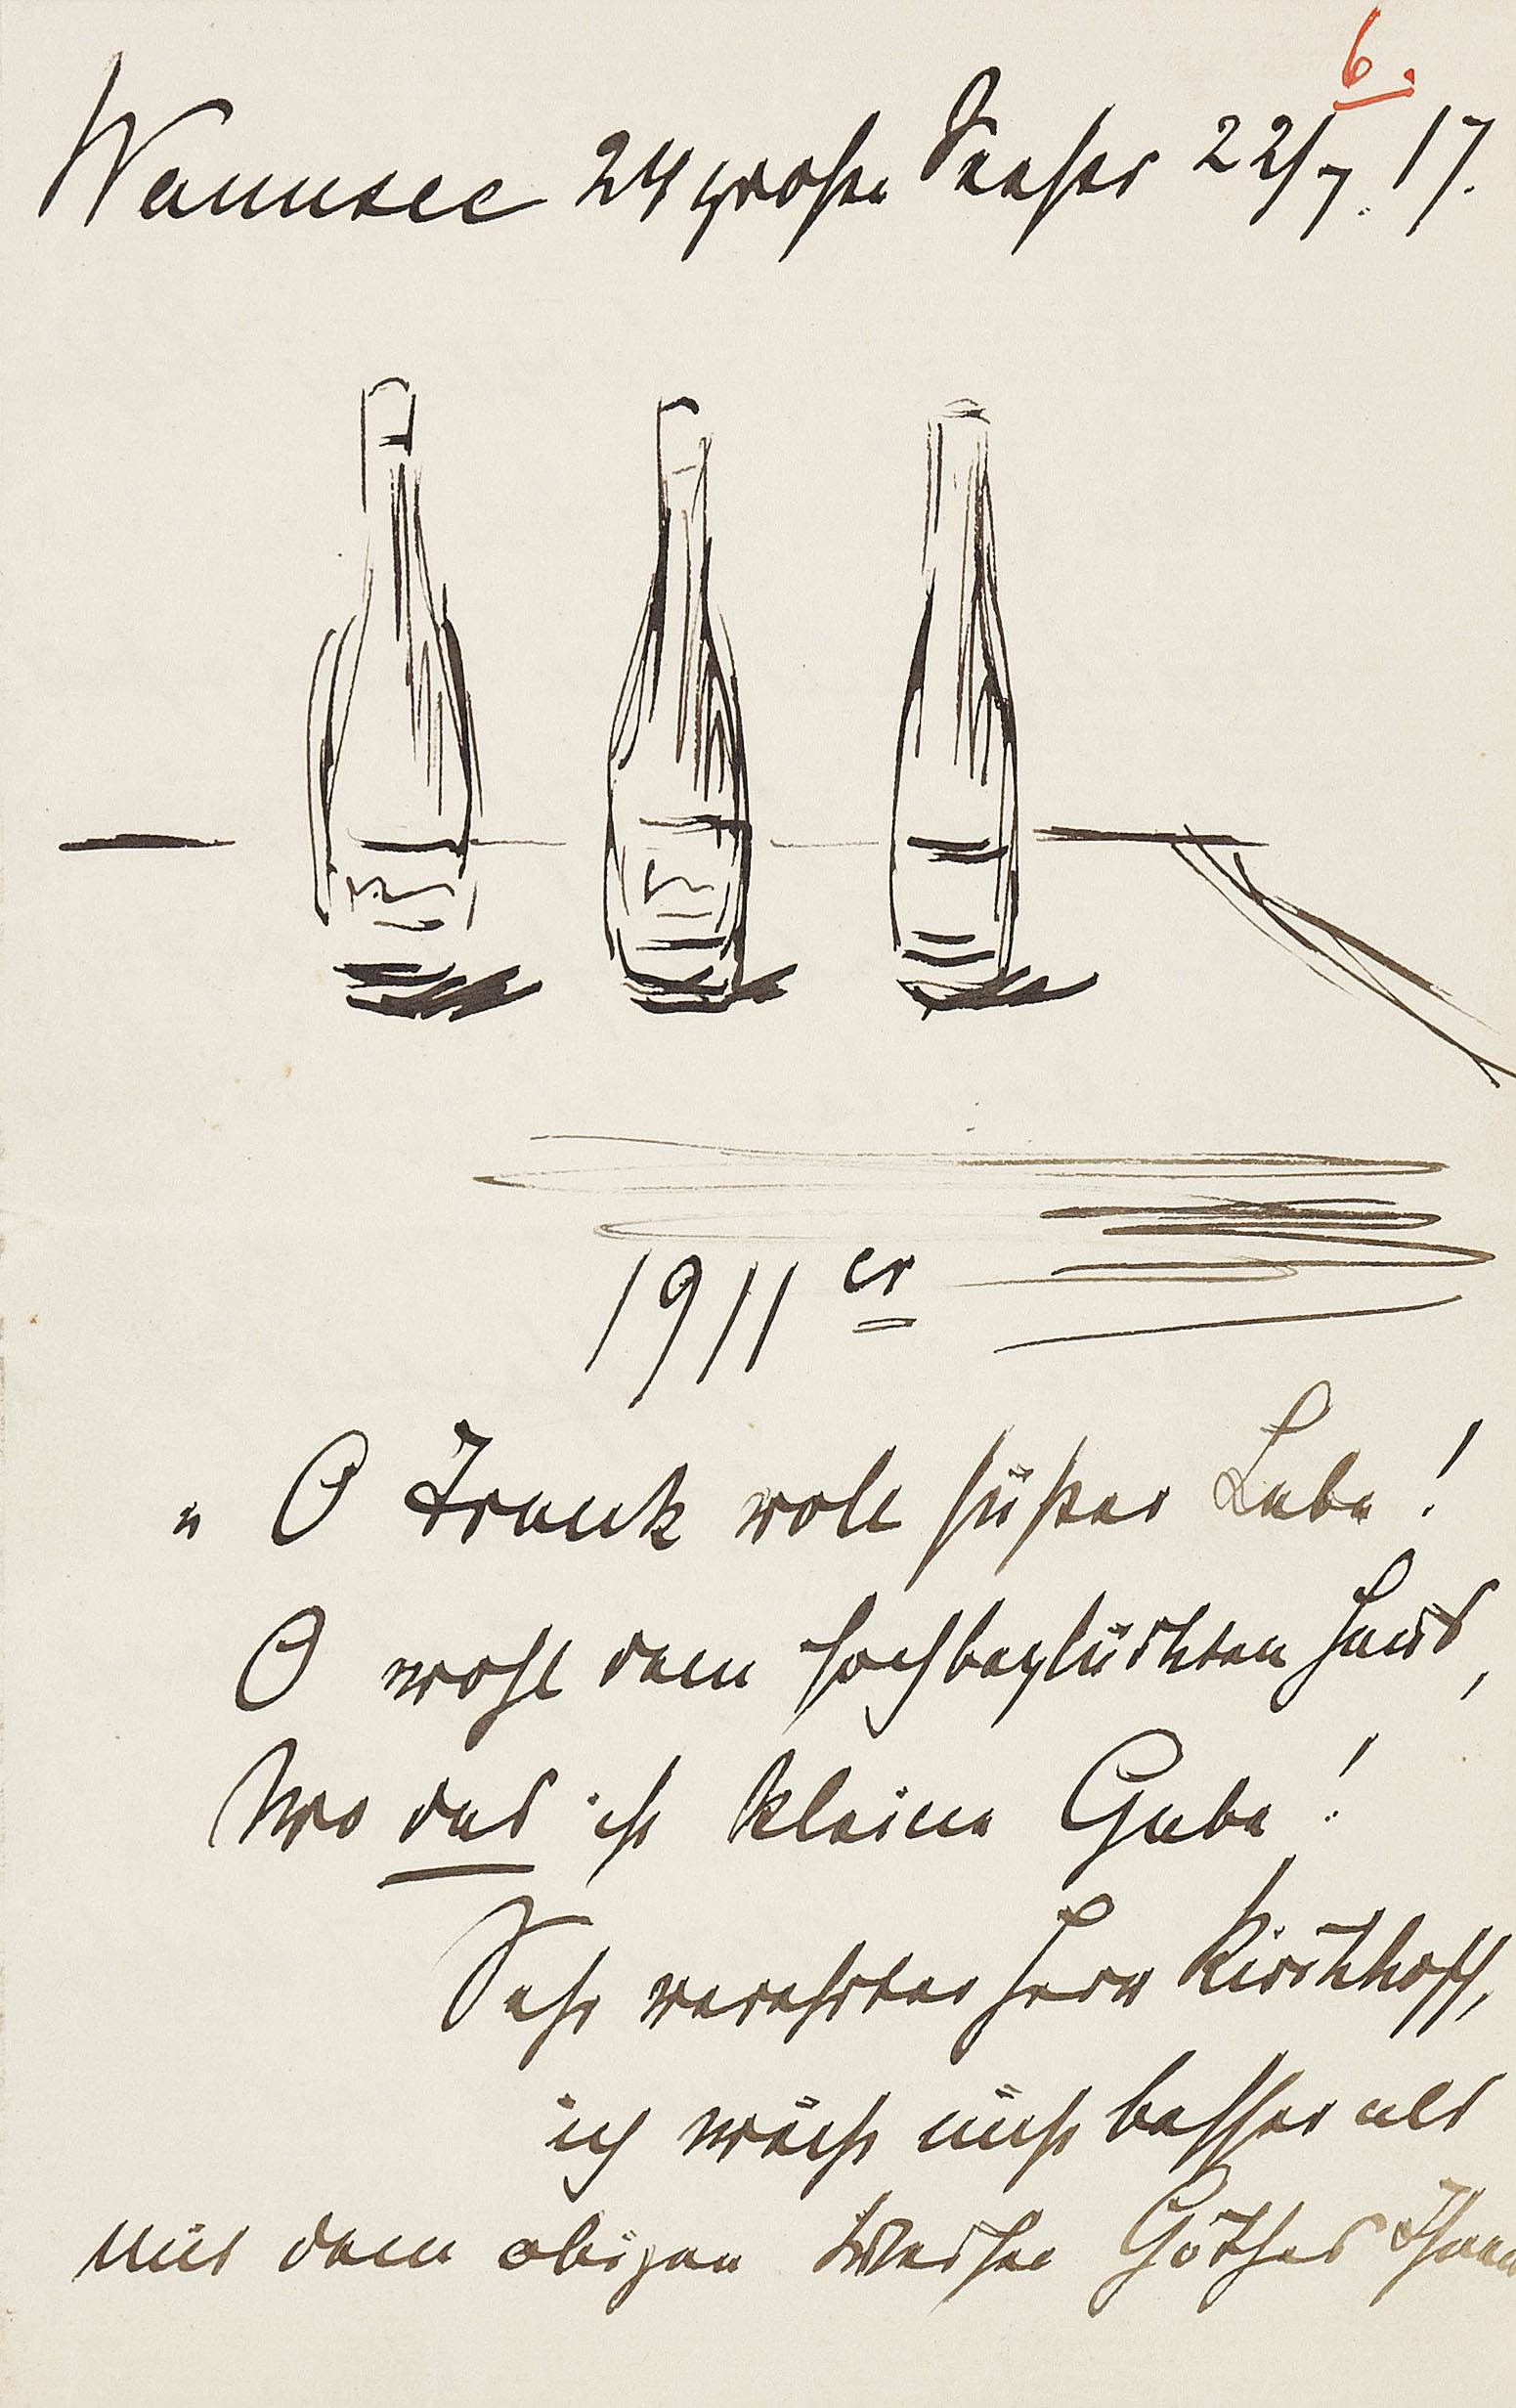 6.
Wannsee 24 große Seestr 22/7. 17.
1911er
„ O Trank voll süßer Labe!
O wohl dem hochbeglückten Haus,
Wo das ist kleine Gabe!
Sehr verehrter Herr Kirchhoff,
ich wüßte nicht besser als
mit dem obigen Verse Göthes Ihnen